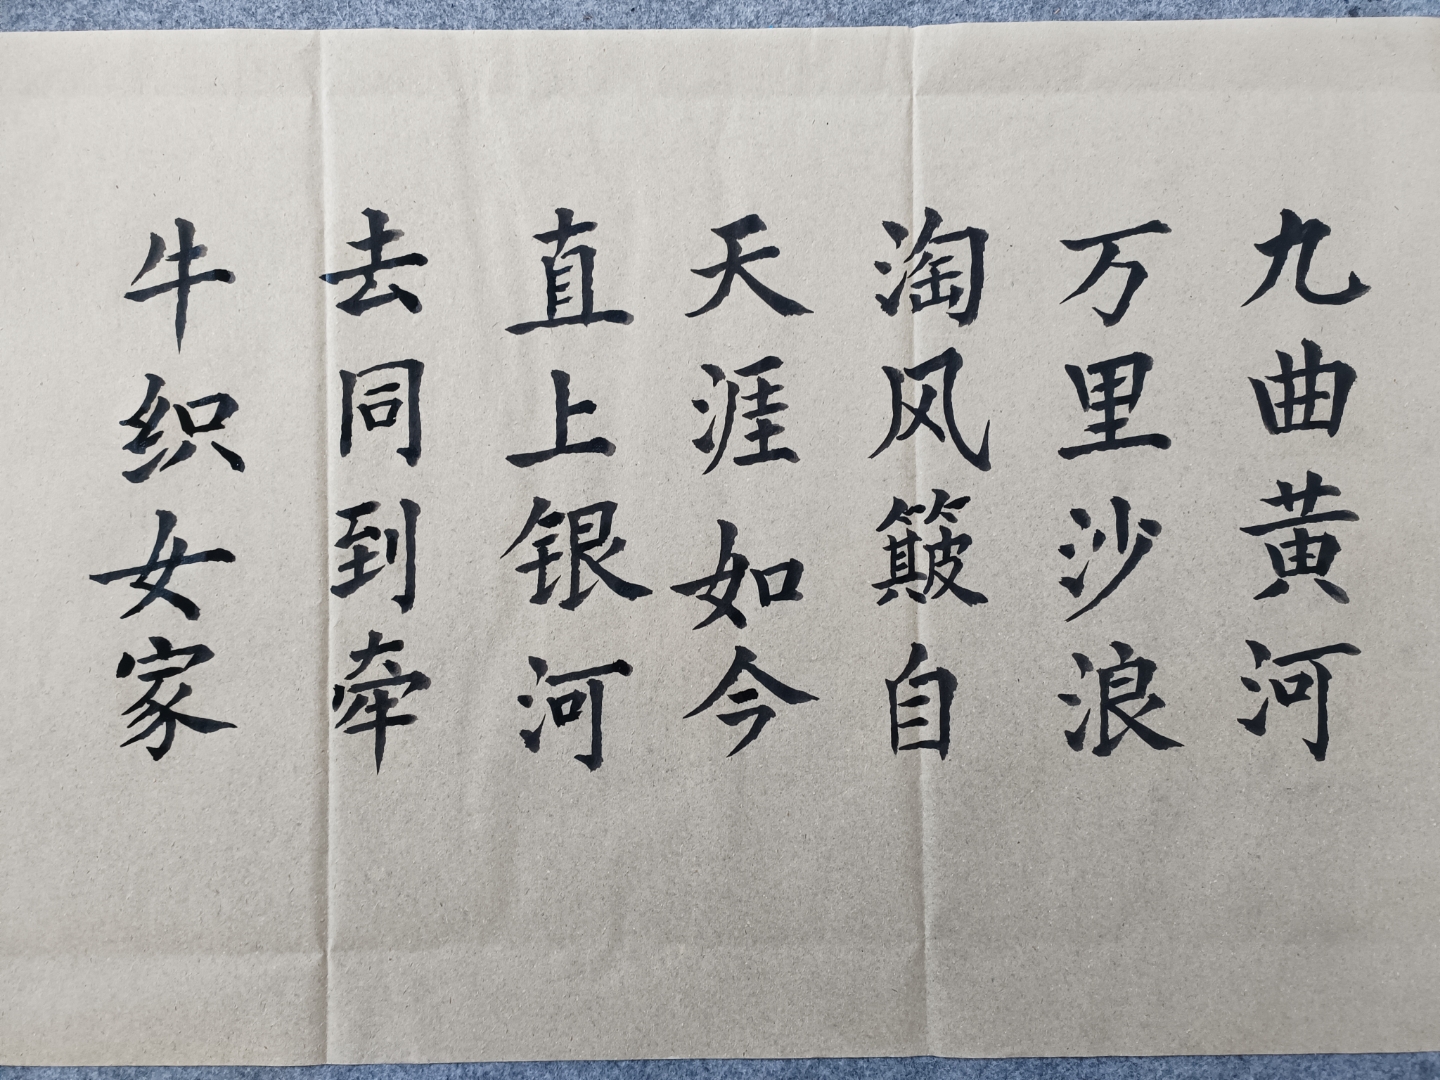 九曲黄河
万里沙浪
淘风簸自
天涯如今
直上银河
去同到牵
牛织女家